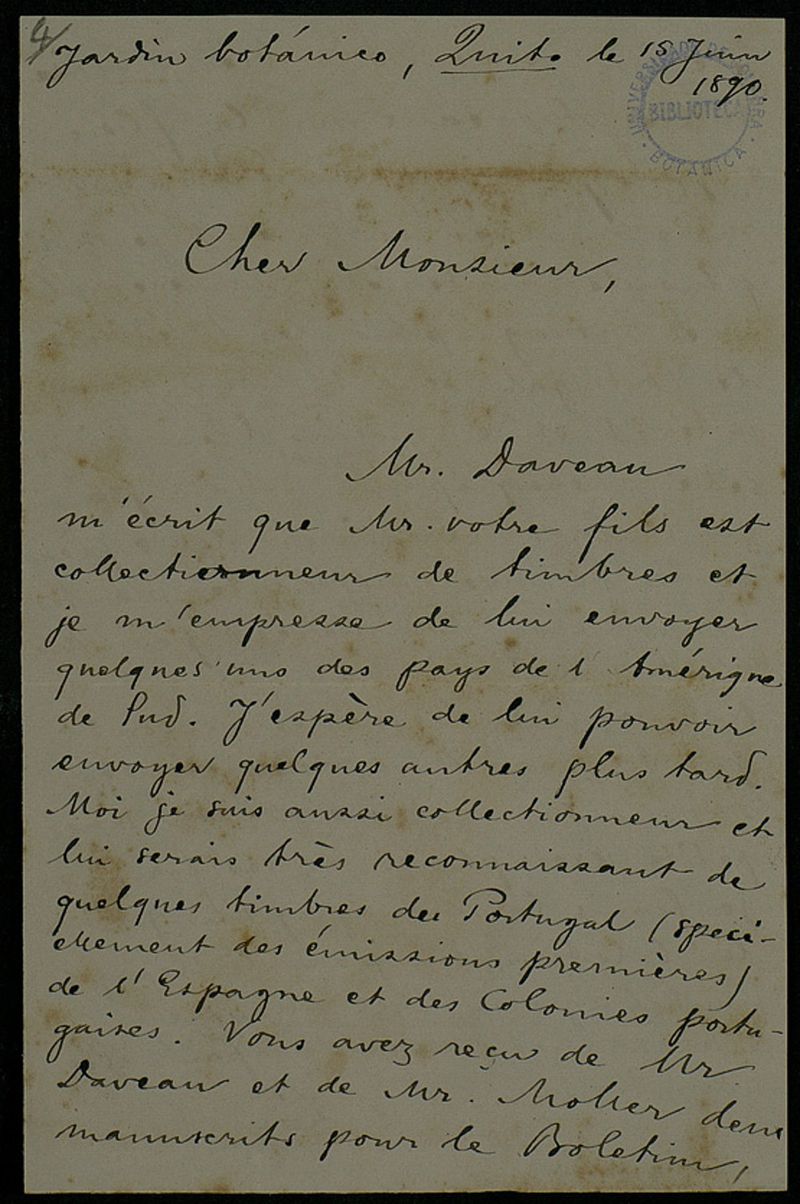 4/
Jardin botánico, Quito le 15 Juin
1890.
UNIVERSIDADE DE COIMBRA
BIBLIOTECA
BOTANICA
Cher Monsieur,
Mr. Daveau
m'écrit que Mr. votre fils est
collectionneur de timbres et
je m'empresse de lui envoyer
quelques uns des pays de l'Amérique
de Sud. J'espère de lui pouvoir
envoyer quelques autres plus tard.
Moi je suis aussi collectionneur et
lui serais très reconnaissant de
quelques timbres du Portugal (speci-
ellement des émissions premières)
de l'Espagne et des Colonies portu-
gaises. Vous avez reçu de Mr
Daveau et de Mr. Moller deux
manuscrits pour le Boletim,